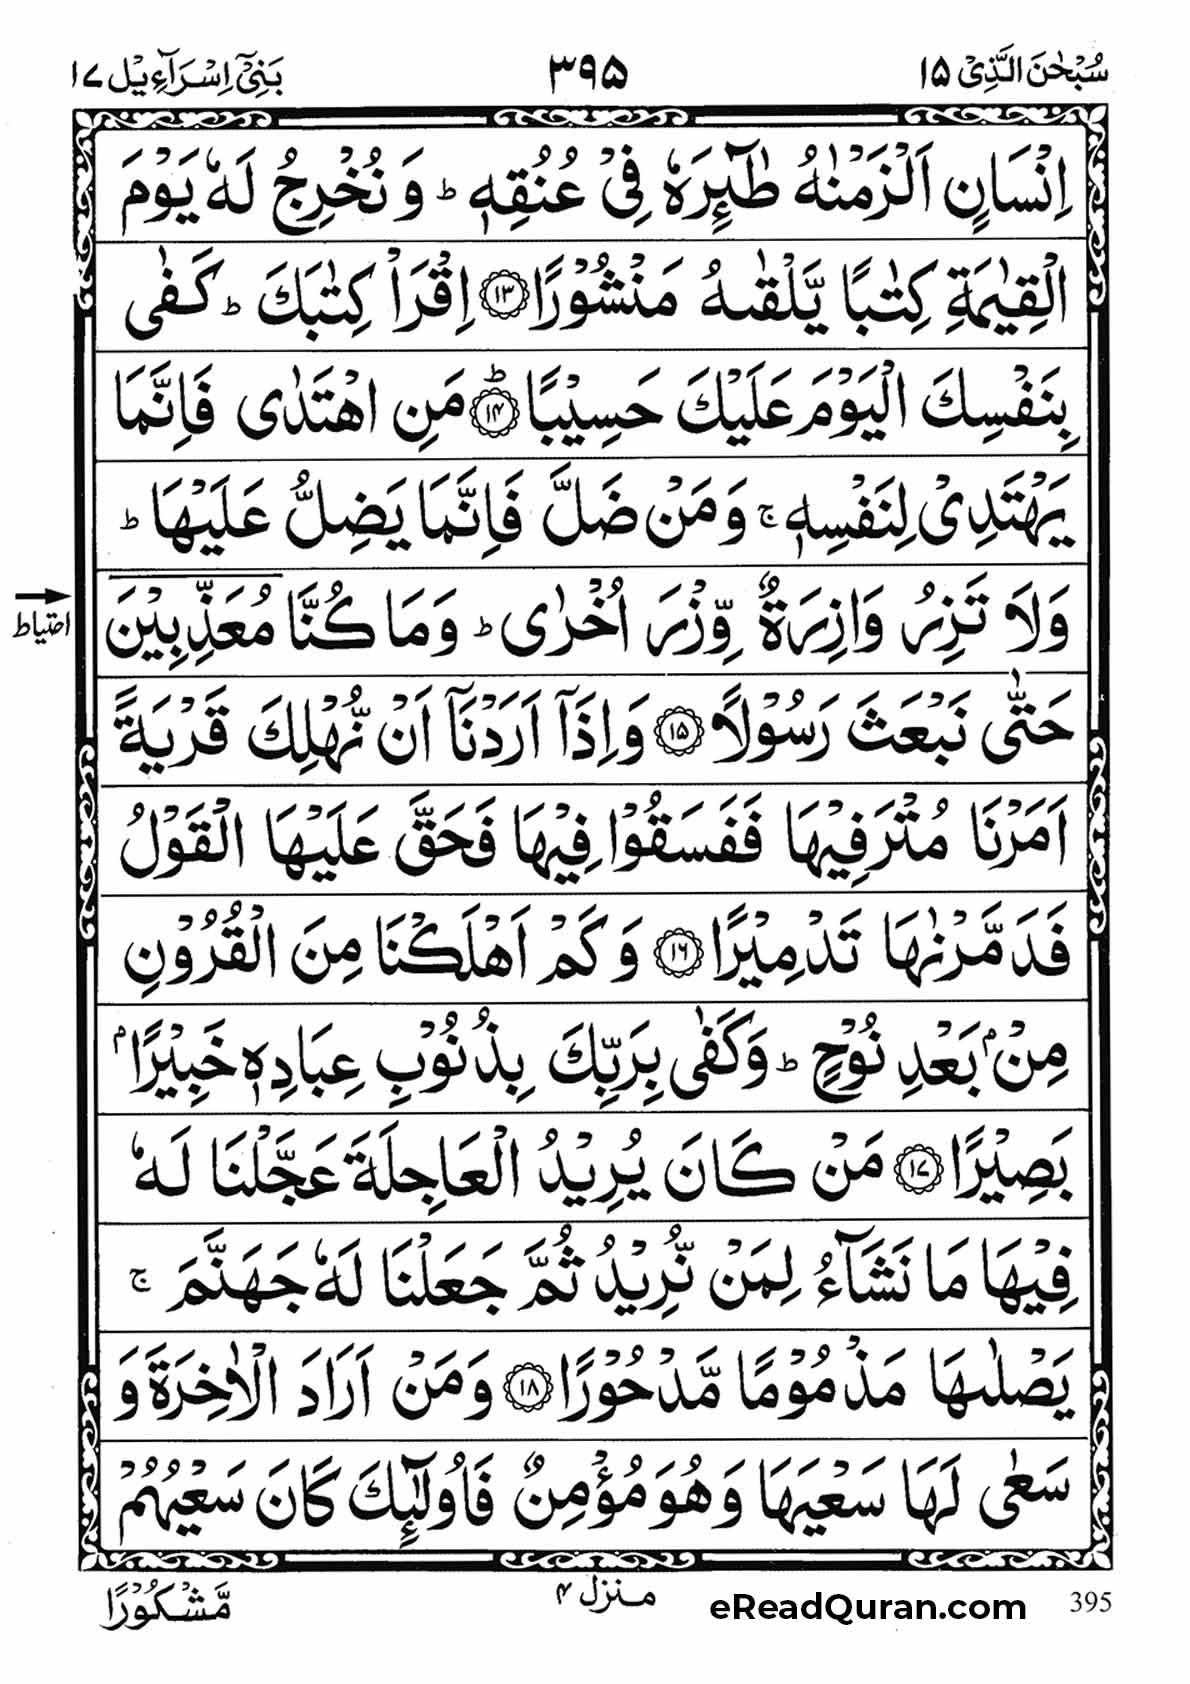 سُبْحٰنَ الَّذِیْ ۱۵
۳۹۵
بَنِیْۤ اِسْرَآءِیْل ۱۷
اِنْسَانٍ اَلْزَمْنٰهُ طٰٓئِرَهٗ فِیْ عُنُقِهٖ ؕ وَ نُخْرِجُ لَهٗ یَوْمَ
الْقِیٰمَةِ كِتٰبًا یَّلْقٰىهُ مَنْشُوْرًا ۱۳ اِقْرَاْ كِتٰبَكَ ؕ كَفٰی
بِنَفْسِكَ الْیَوْمَ عَلَیْكَ حَسِیْبًا ؕ ۱۴ مَنِ اهْتَدٰی فَاِنَّمَا
یَهْتَدِیْ لِنَفْسِهٖ ۚ وَ مَنْ ضَلَّ فَاِنَّمَا یَضِلُّ عَلَیْهَا ؕ
وَلَا تَزِرُ وَازِرَةٌ وِّزْرَ اُخْرٰی ؕ وَ مَا كُنَّا مُعَذِّبِیْنَ
احتیاط
حَتّٰی نَبْعَثَ رَسُوْلًا ۱۵ وَ اِذَاۤ اَرَدْنَاۤ اَنْ نُّهْلِكَ قَرْیَةً
اَمَرْنَا مُتْرَفِیْهَا فَفَسَقُوْا فِیْهَا فَحَقَّ عَلَیْهَا الْقَوْلُ
فَدَمَّرْنٰهَا تَدْمِیْرًا ۱۶ وَ كَمْ اَهْلَكْنَا مِنَ الْقُرُوْنِ
مِنْۢ بَعْدِ نُوْحٍ ؕ وَ كَفٰی بِرَبِّكَ بِذُنُوْبِ عِبَادِهٖ خَبِیْرًۢا
بَصِیْرًا ۱۷ مَنْ كَانَ یُرِیْدُ الْعَاجِلَةَ عَجَّلْنَا لَهٗ
فِیْهَا مَا نَشَآءُ لِمَنْ نُّرِیْدُ ثُمَّ جَعَلْنَا لَهٗ جَهَنَّمَ ۚ
یَصْلٰىهَا مَذْمُوْمًا مَّدْحُوْرًا ۱۸ وَ مَنْ اَرَادَ الْاٰخِرَةَ وَ
سَعٰی لَهَا سَعْیَهَا وَ هُوَ مُؤْمِنٌ فَاُولٰٓئِكَ كَانَ سَعْیُهُمْ
مَّشْكُوْرًا
منزل ۴
eReadQuran.com
395